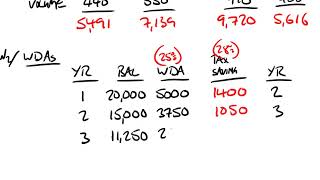 5,491 7,139 9,720 5,616
w/ WDAs
(25%) (28%)
YR BAL WDA TAX SAVING YR
1 20,000 5000 1400 2
2 15,000 3750 1050 3
3 11,250 2